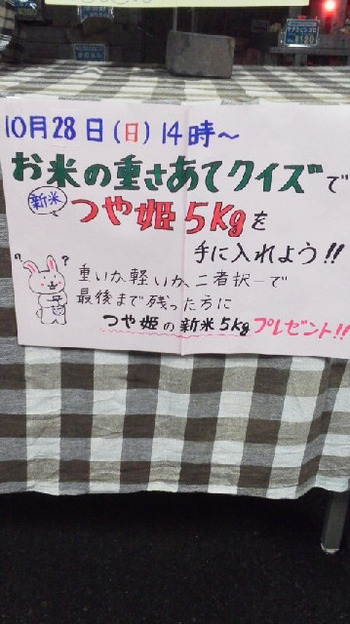 10月28日(日)14時〜
お米の重さあてクイズで
新米
つや姫5kgを
手に入れよう!!
? ?
重いか、軽いか、二者択一で
最後まで残った方に
つや姫の新米5kgプレゼント!!